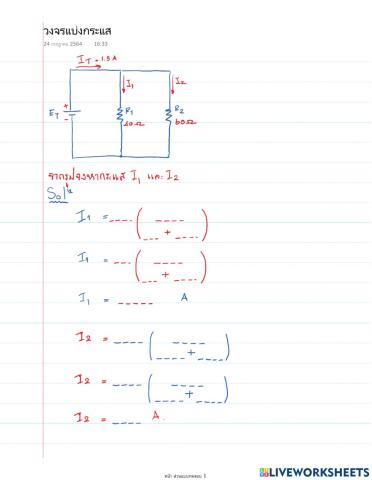 วงจรแบ่งกระแส
24 กรกฎาคม 2564 16:33
I_T = 1.5 A
I₁ I₂
E_T + - R₁ R₂
60Ω
จากรูปจงหากระแส I₁ และ I₂
Solⁿ
I₁ = ---- ( ---- / ---- + ---- )
I₁ = ---- ( ---- / ---- + ---- )
I₁ = ----- A
I₂ = ---- ( ---- / ---- + ---- )
I₂ = ---- ( ---- / ---- + ---- )
I₂ = ---- A.
LIVEWORKSHEETS